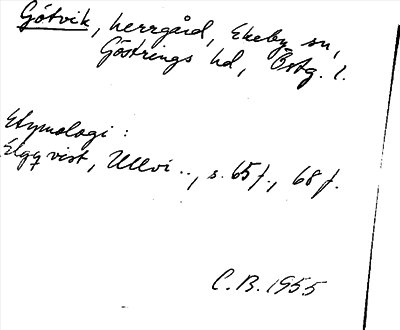 Götvik, herrgård, Ekeby sn,
Göstrings hd, Östg. l.
Etymologi :
Elgqvist, Ullvi .., s. 65 f., 68 f.
C.B. 1955